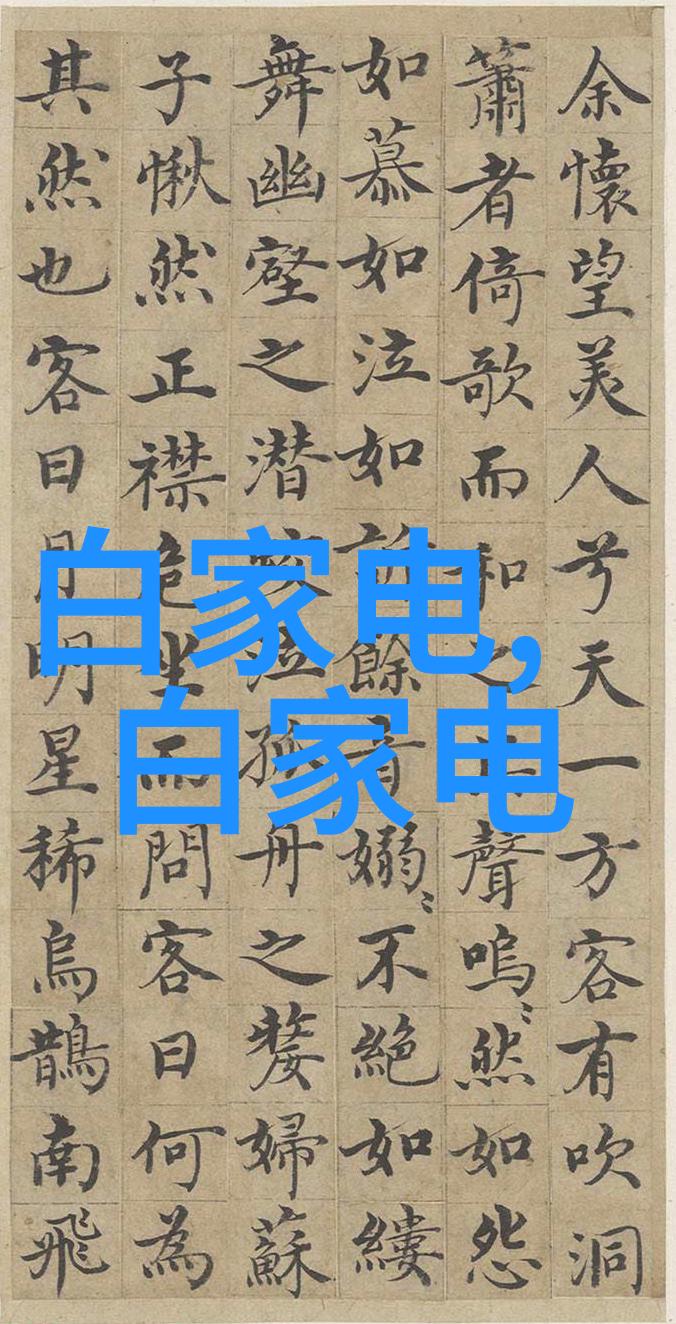 余懷望美人兮天一方客有吹洞
簫者倚歌而和之聲嗚〻然如怨
如慕如泣如訴餘音嫋〻不絶如縷
舞幽壑之潜蛟泣孤舟之嫠婦蘇
子愀然正襟危坐而問客曰何為
其然也客曰月明星稀烏鵲南飛
白家电,
白家电